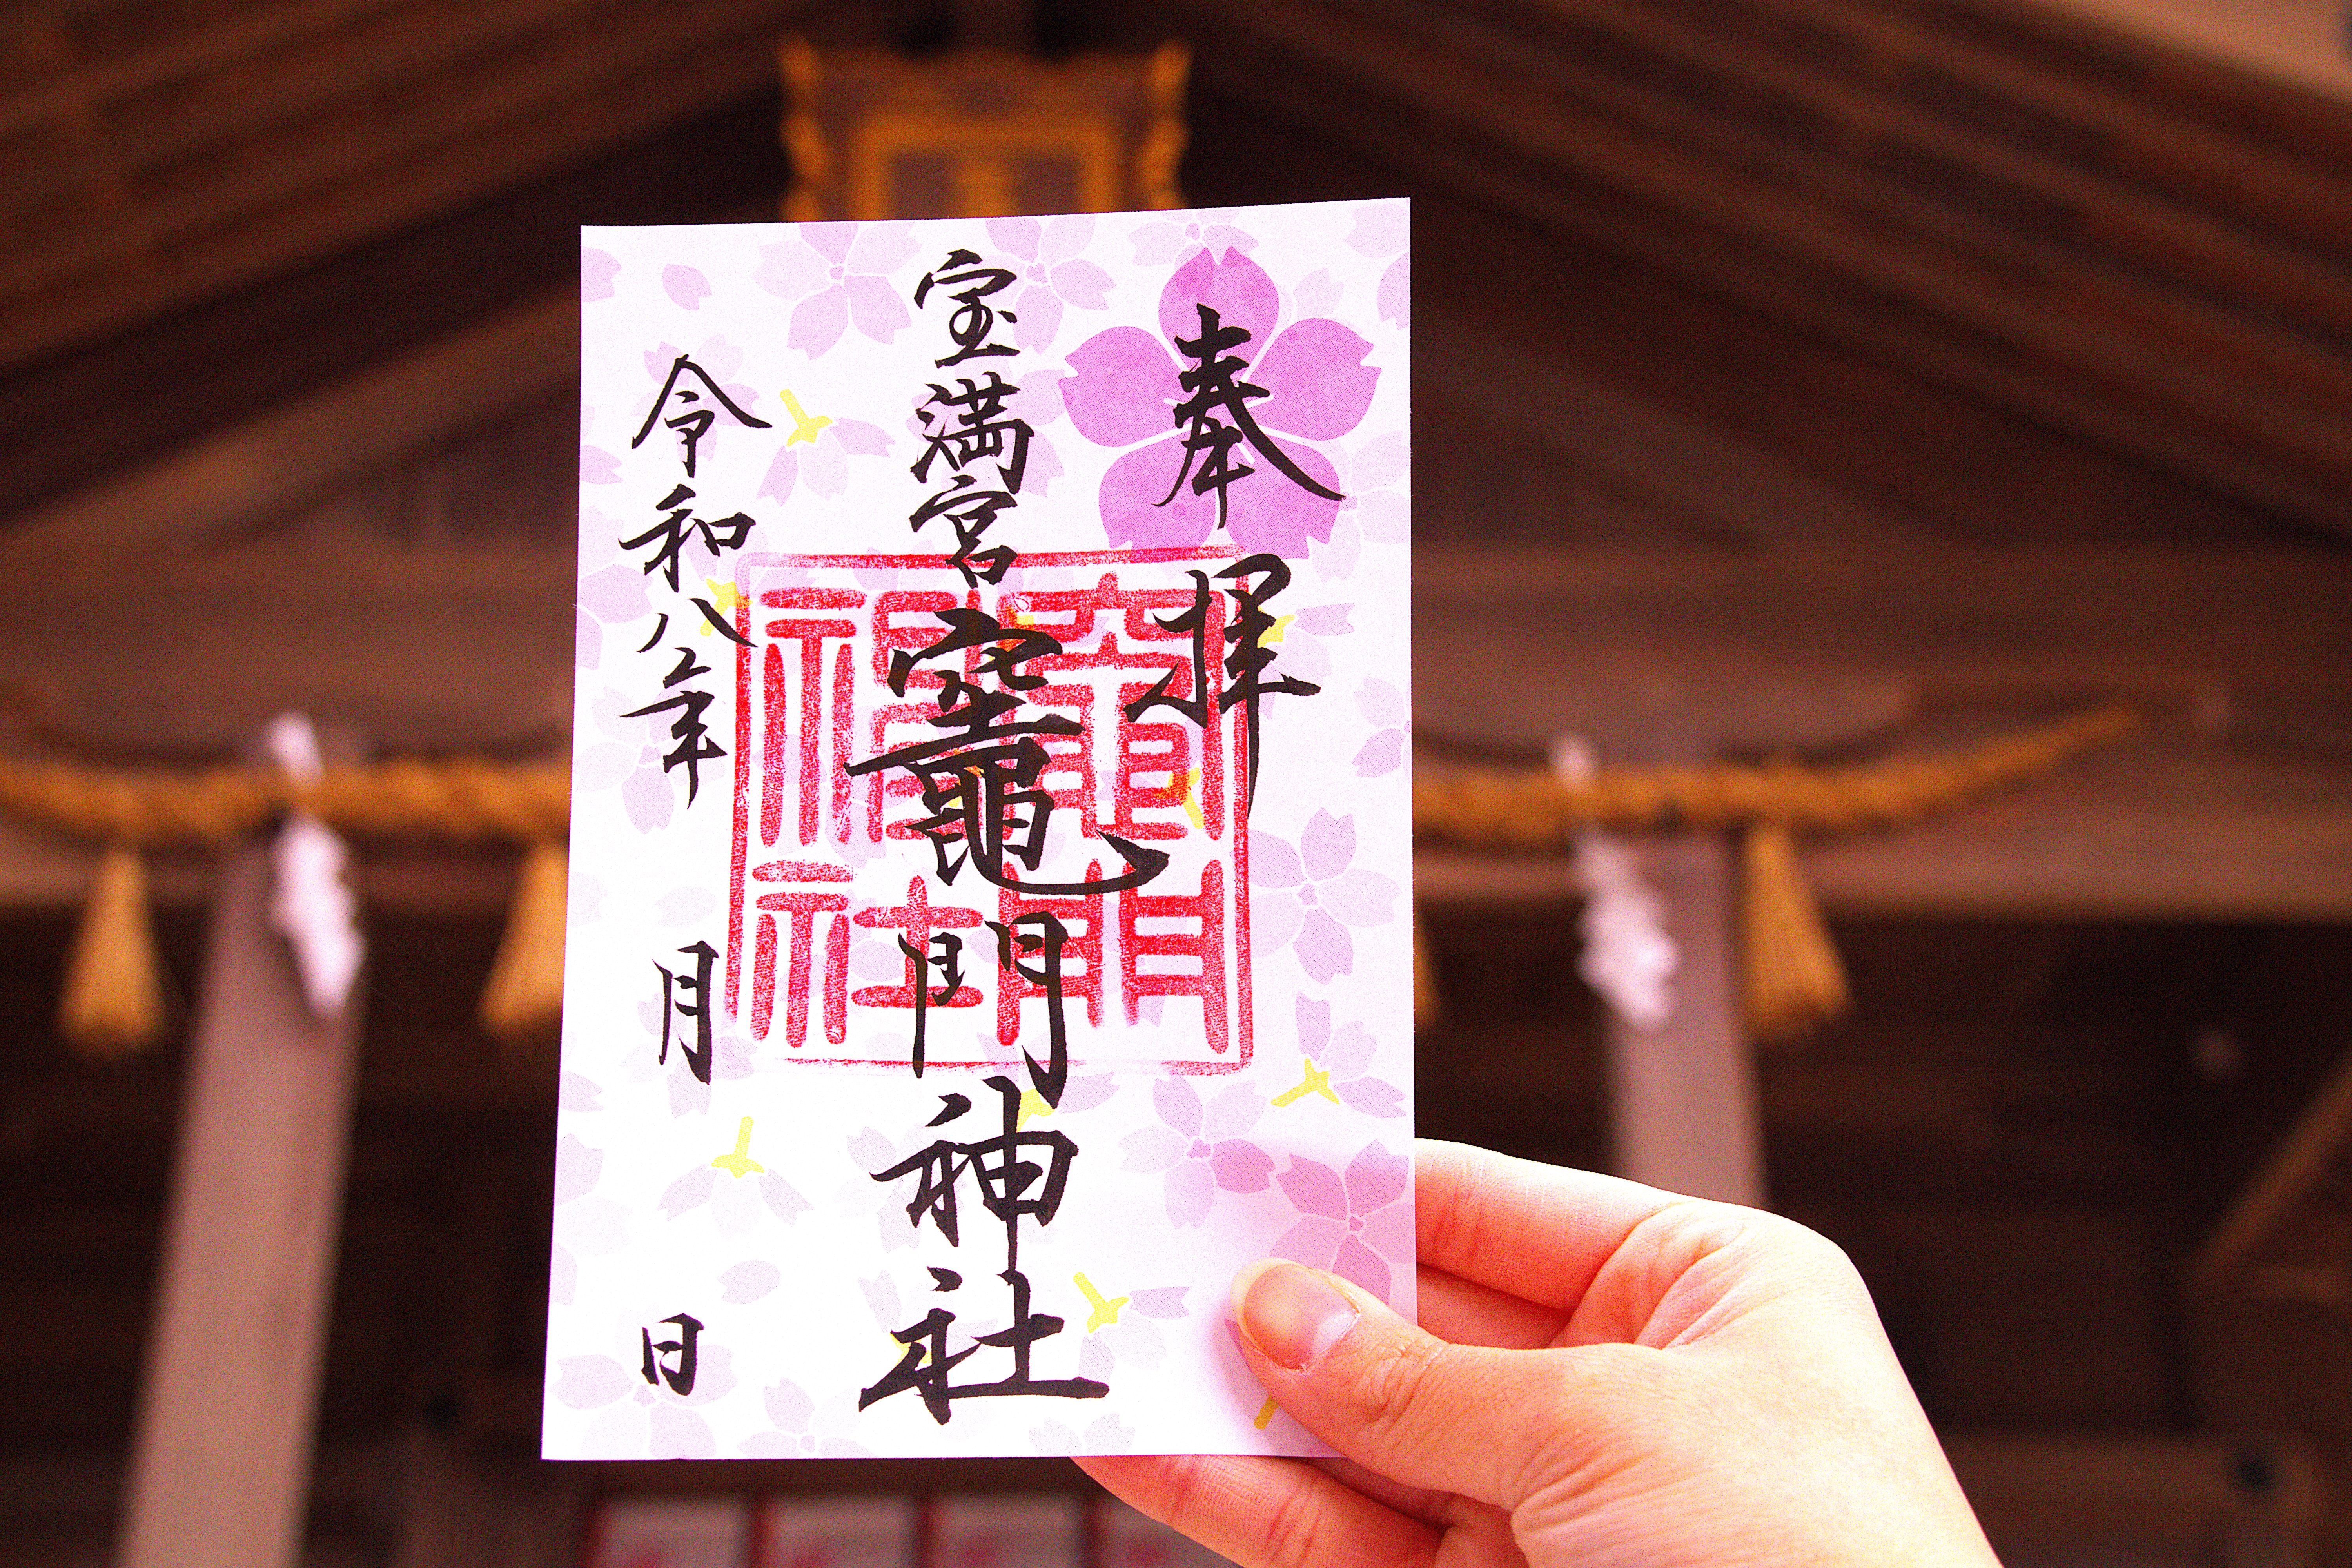 奉拝
宝満宮
竈門神社
令和八年 月 日
竈門
神社